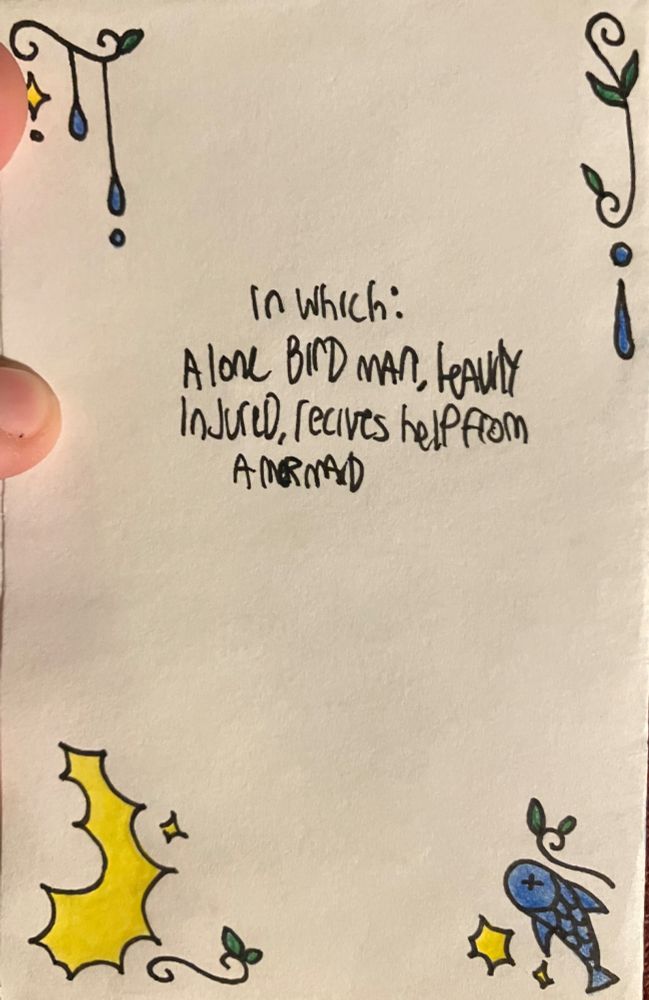 In which:
A lone BirD man, heavily
InJureD, recives help from
A merMaiD